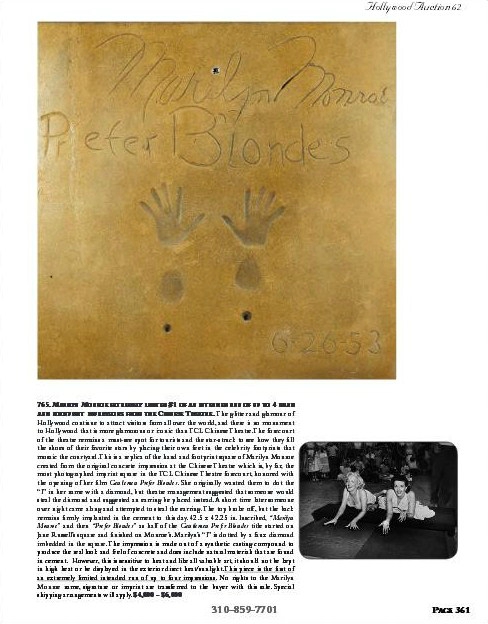 Hollywood Auction 62
Marilyn Monroe
Prefer Blondes
6-26-53
765. Marilyn Monroe extremely limited #1 of an intended run of up to 4 hand
and footprint impressions from the Chinese Theatre. The glitter and glamour of
Hollywood continue to attract visitors from all over the world, and there is no monument
to Hollywood that is more glamorous or iconic than TCL Chinese Theatre. The forecourt
of the theatre remains a must-see spot for tourists and the star-struck to see how they fill
the shoes of their favorite stars by placing their own feet in the celebrity footprints that
mosaic the courtyard. This is a replica of the hand and footprint square of Marilyn Monroe
created from the original concrete impression at the Chinese Theatre which is, by far, the
most photographed imprint square in the TCL Chinese Theatre forecourt, honored with
the opening of her film Gentlemen Prefer Blondes. She originally wanted them to dot the
"I" in her name with a diamond, but theatre management suggested that someone would
steal the diamond and suggested an earring be placed instead. A short time later someone
over night came along and attempted to steal the earring. The top broke off, but the back
remains firmly implanted in the cement to this day. 42.5 x 42.25 in. Inscribed, "Marilyn
Monroe" and then "Prefer Blondes" as half of the Gentlemen Prefer Blondes title started on
Jane Russell's square and finished on Monroe's. Marilyn's "I" is dotted by a faux diamond
imbedded in the square. The impression is made out of a synthetic casting compound to
produce the real look and feel of concrete and does include natural materials that are found
in cement. However, this is sensitive to heat and like all valuable art, it should not be kept
in high heat or be displayed in the exterior direct heat/sunlight. This piece is the first of
an extremely limited intended run of up to four impressions. No rights to the Marilyn
Monroe name, signature or imprint are transferred to the buyer with this sale. Special
shipping arrangements will apply. $4,000 – $6,000
310-859-7701
Page 361